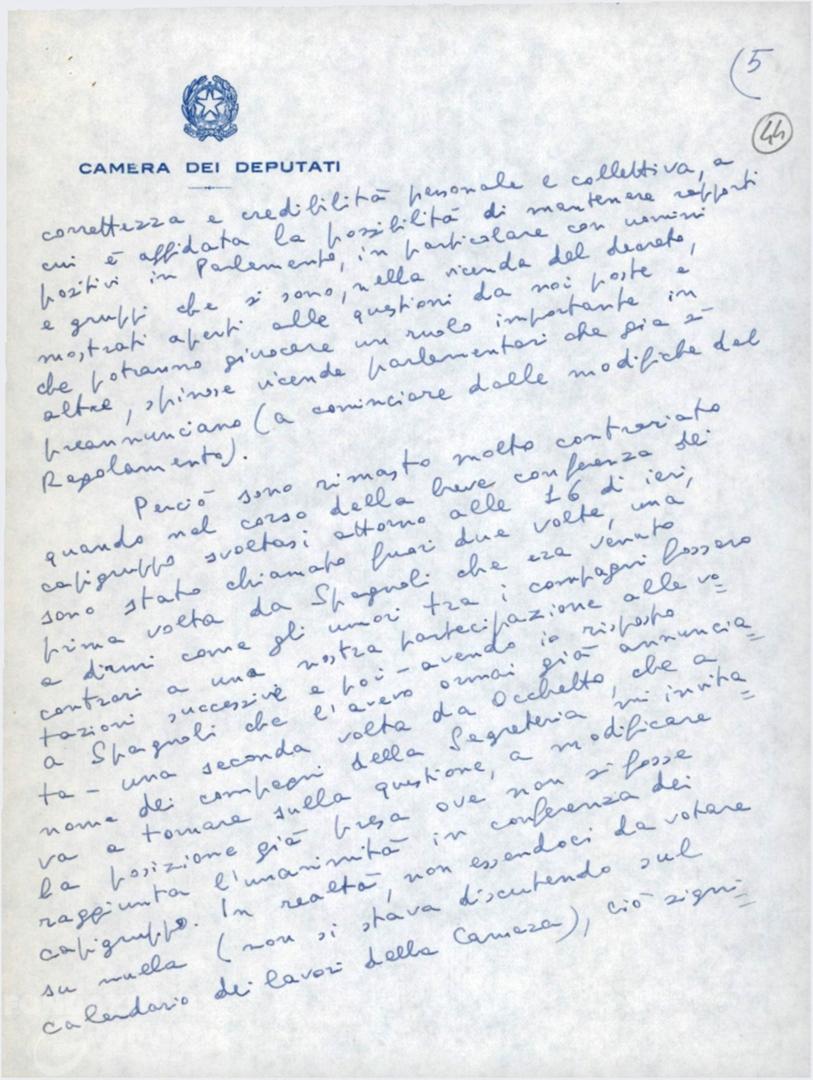 (5
44
CAMERA DEI DEPUTATI
correttezza e credibilità personale e collettiva, a
cui è affidata la possibilità di mantenere rapporti
positivi in Parlamento, in particolare con uomini
e gruppi che si sono, nella vicenda del decreto,
mostrati aperti alle questioni da noi poste e
che potranno giuocare un ruolo importante in
altre, spinose vicende parlamentari che già si
preannunciano (a cominciare dalle modifiche del
Regolamento).
Perciò sono rimasto molto contrariato
quando nel corso della breve conferenza dei
capigruppo svoltasi attorno alle 16 di ieri,
sono stato chiamato fuori due volte, una
prima volta da Spagnoli che era venuto
a dirmi come gli umori tra i compagni fossero
contrari a una nostra partecipazione alle vo=
tazioni successive e poi - avendo io risposto
a Spagnoli che l'avevo ormai già annuncia=
ta - una seconda volta da Occhetto, che a
nome dei compagni della Segreteria mi invita=
va a tornare sulla questione, a modificare
la posizione già presa ove non si fosse
raggiunta l'unanimità in conferenza dei
capigruppo. In realtà, non essendoci da votare
su nulla (non si stava discutendo sul
calendario dei lavori della Camera), ciò signi=